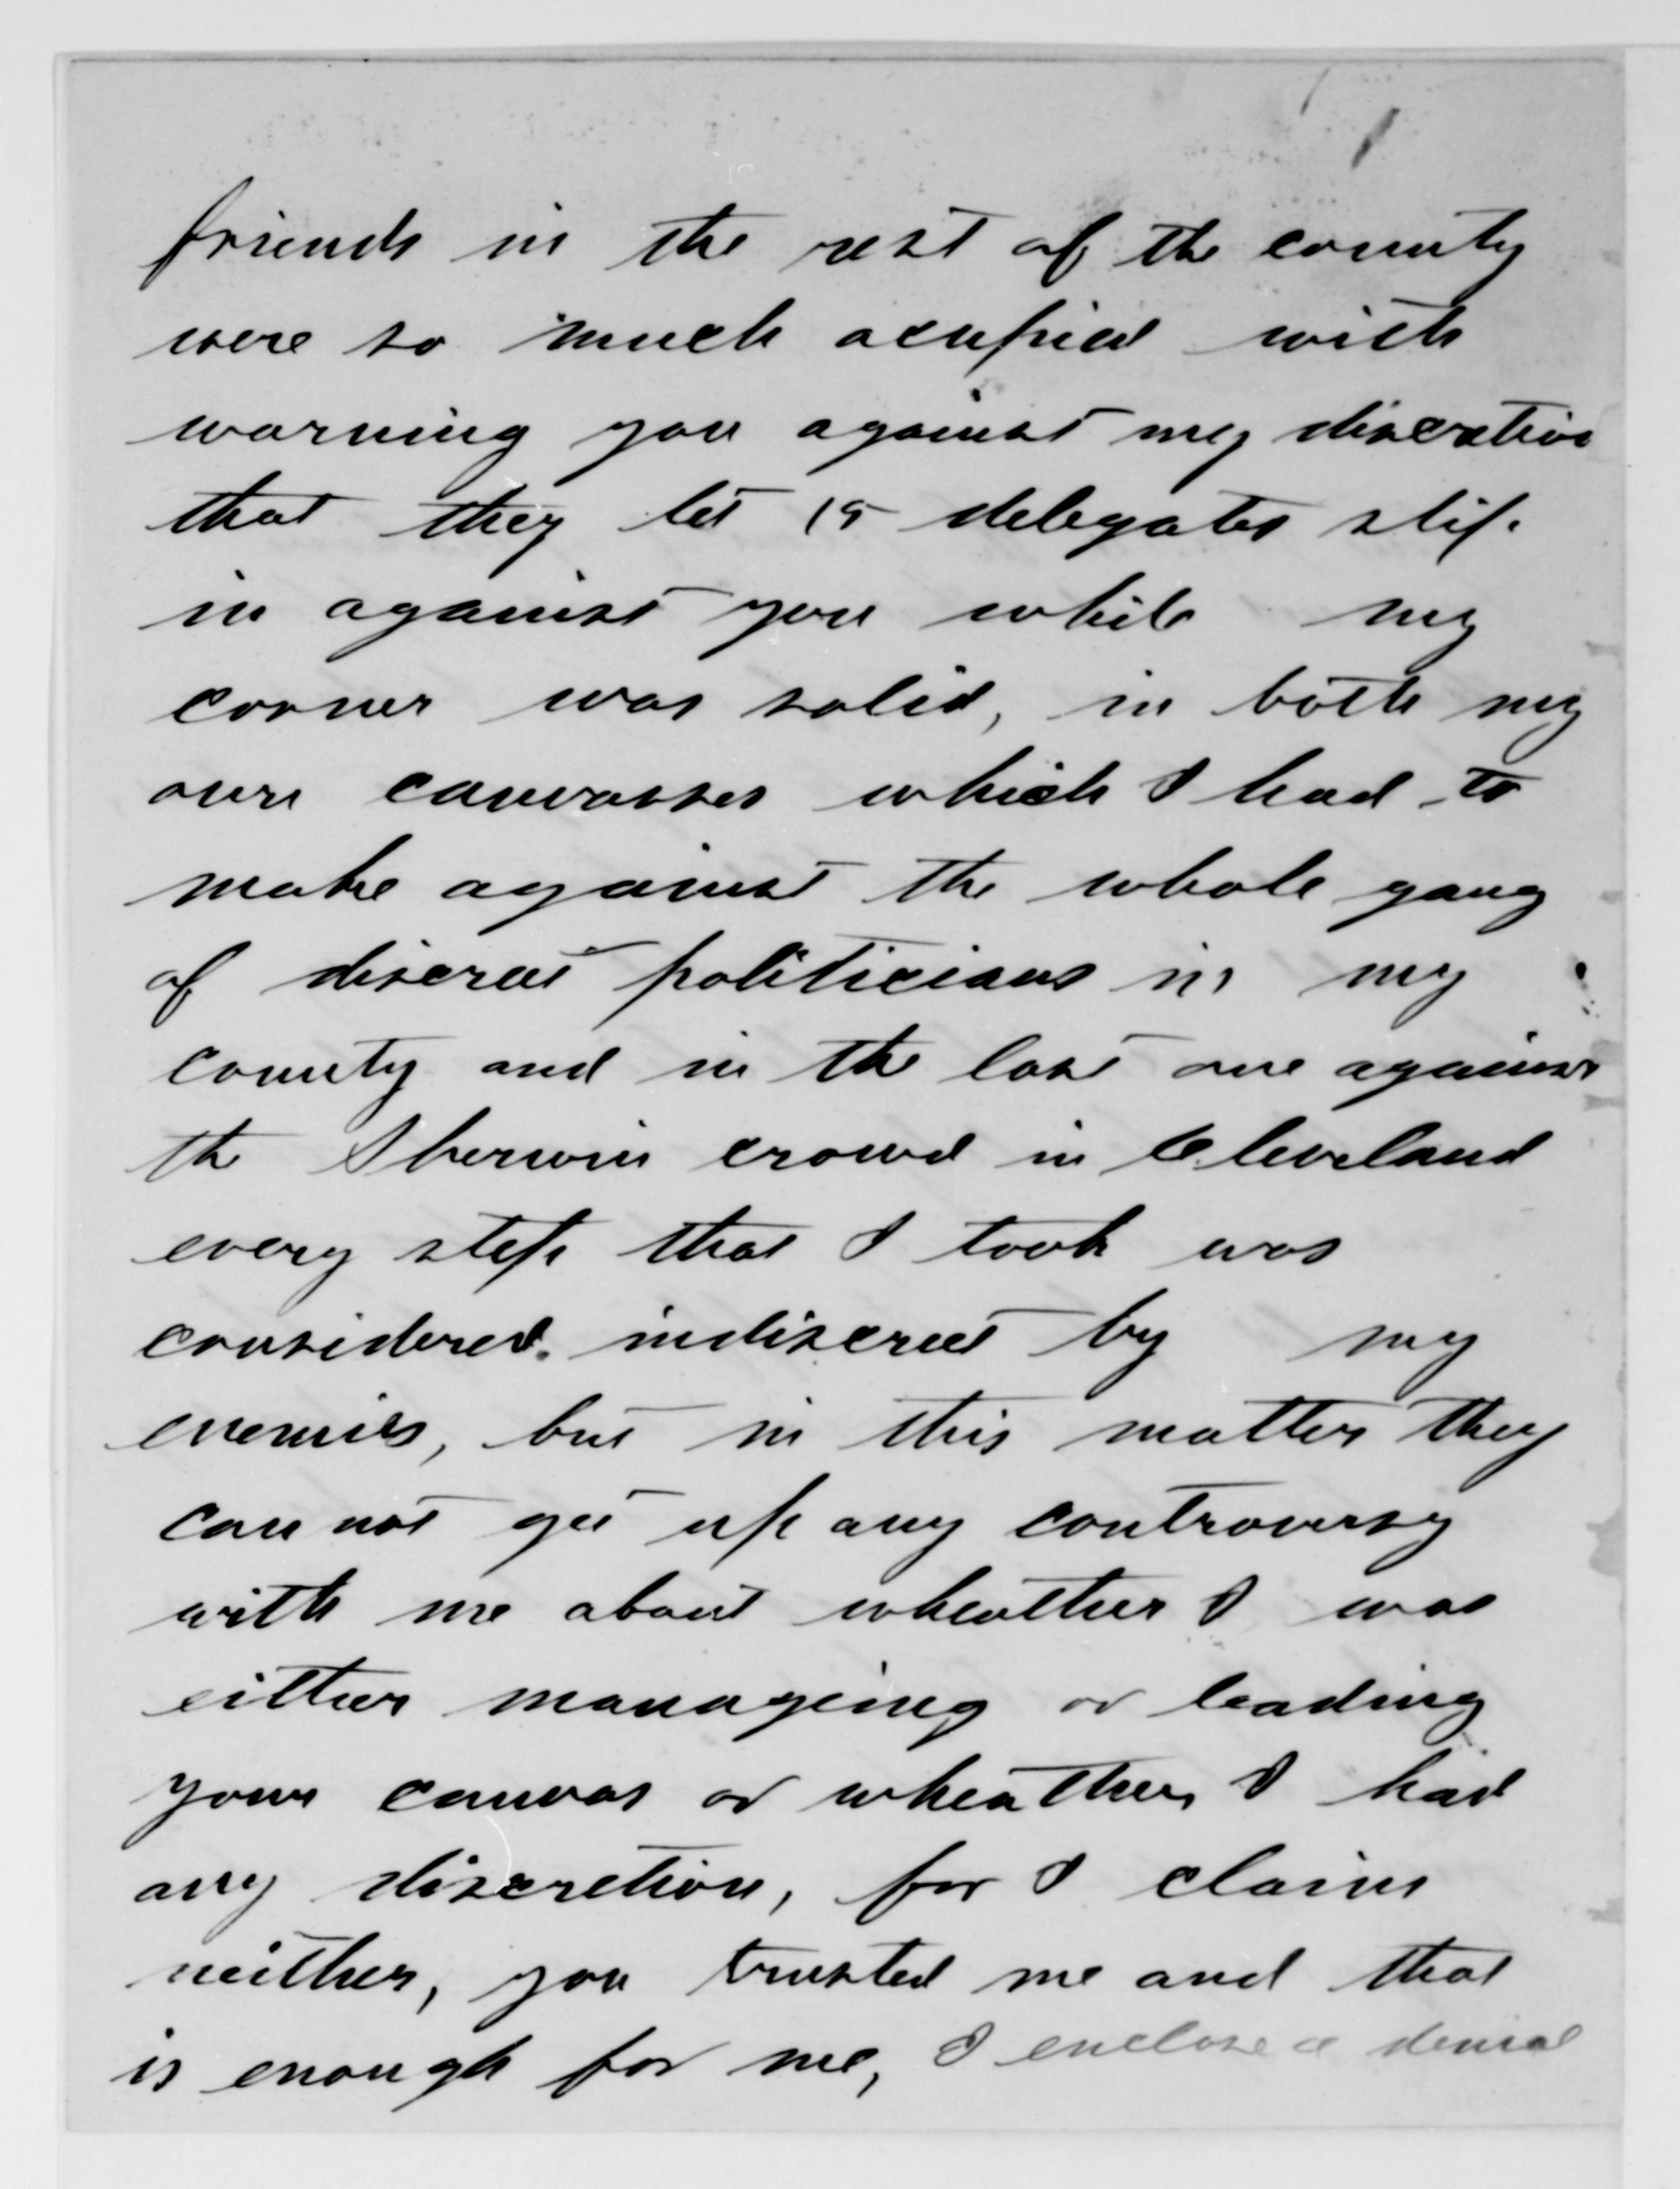 friends in the rest of the county
were so much acupied with
warning you against my discretion
that they let 15 delegates slip
in against you while my
corner was solid, in both my
own canvasses which I had to
make against the whole gang
of discreet politicians in my
county and in the last one against
the Sherwin crowd in Cleveland
every step that I took was
considered indiscreet by my
enemies, but in this matter they
can not get up any controversy
with me about wheather I was
either manageing or leading
your canvas or wheather I had
any discretion, for I claim
neither, you trusted me and that
is enough for me, I enclose a denial